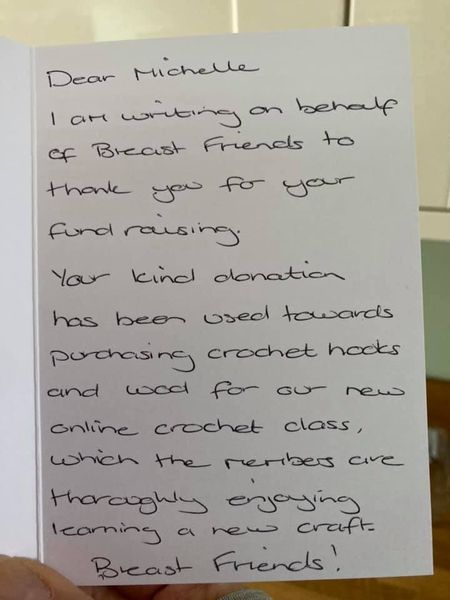 Dear Michelle
I am writing on behalf
of Breast Friends to
thank you for your
fund raising.
Your kind donation
has been used towards
purchasing crochet hooks
and wool for our new
online crochet class,
which the members are
thoroughly enjoying
learning a new craft.
Breast Friends!